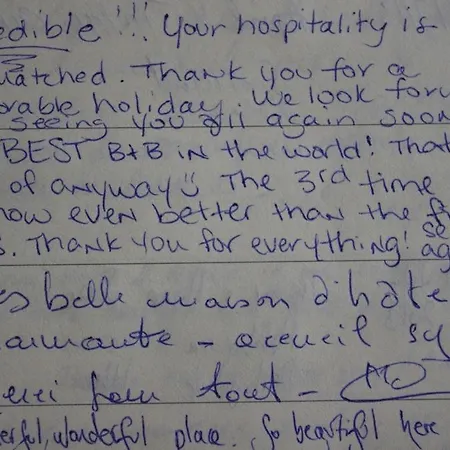 edible !!! Your hospitality is
matched. Thank you for a
orable holiday. We look forw
seeing you all again soon
BEST B+B in the world! That
of anyway The 3rd time
now even better than the fi
s. Thank you for everything! se
ag
s belle maison d'hôte
armante - accueil sy
erci pour tout -
erful, wonderful place. So beautiful here